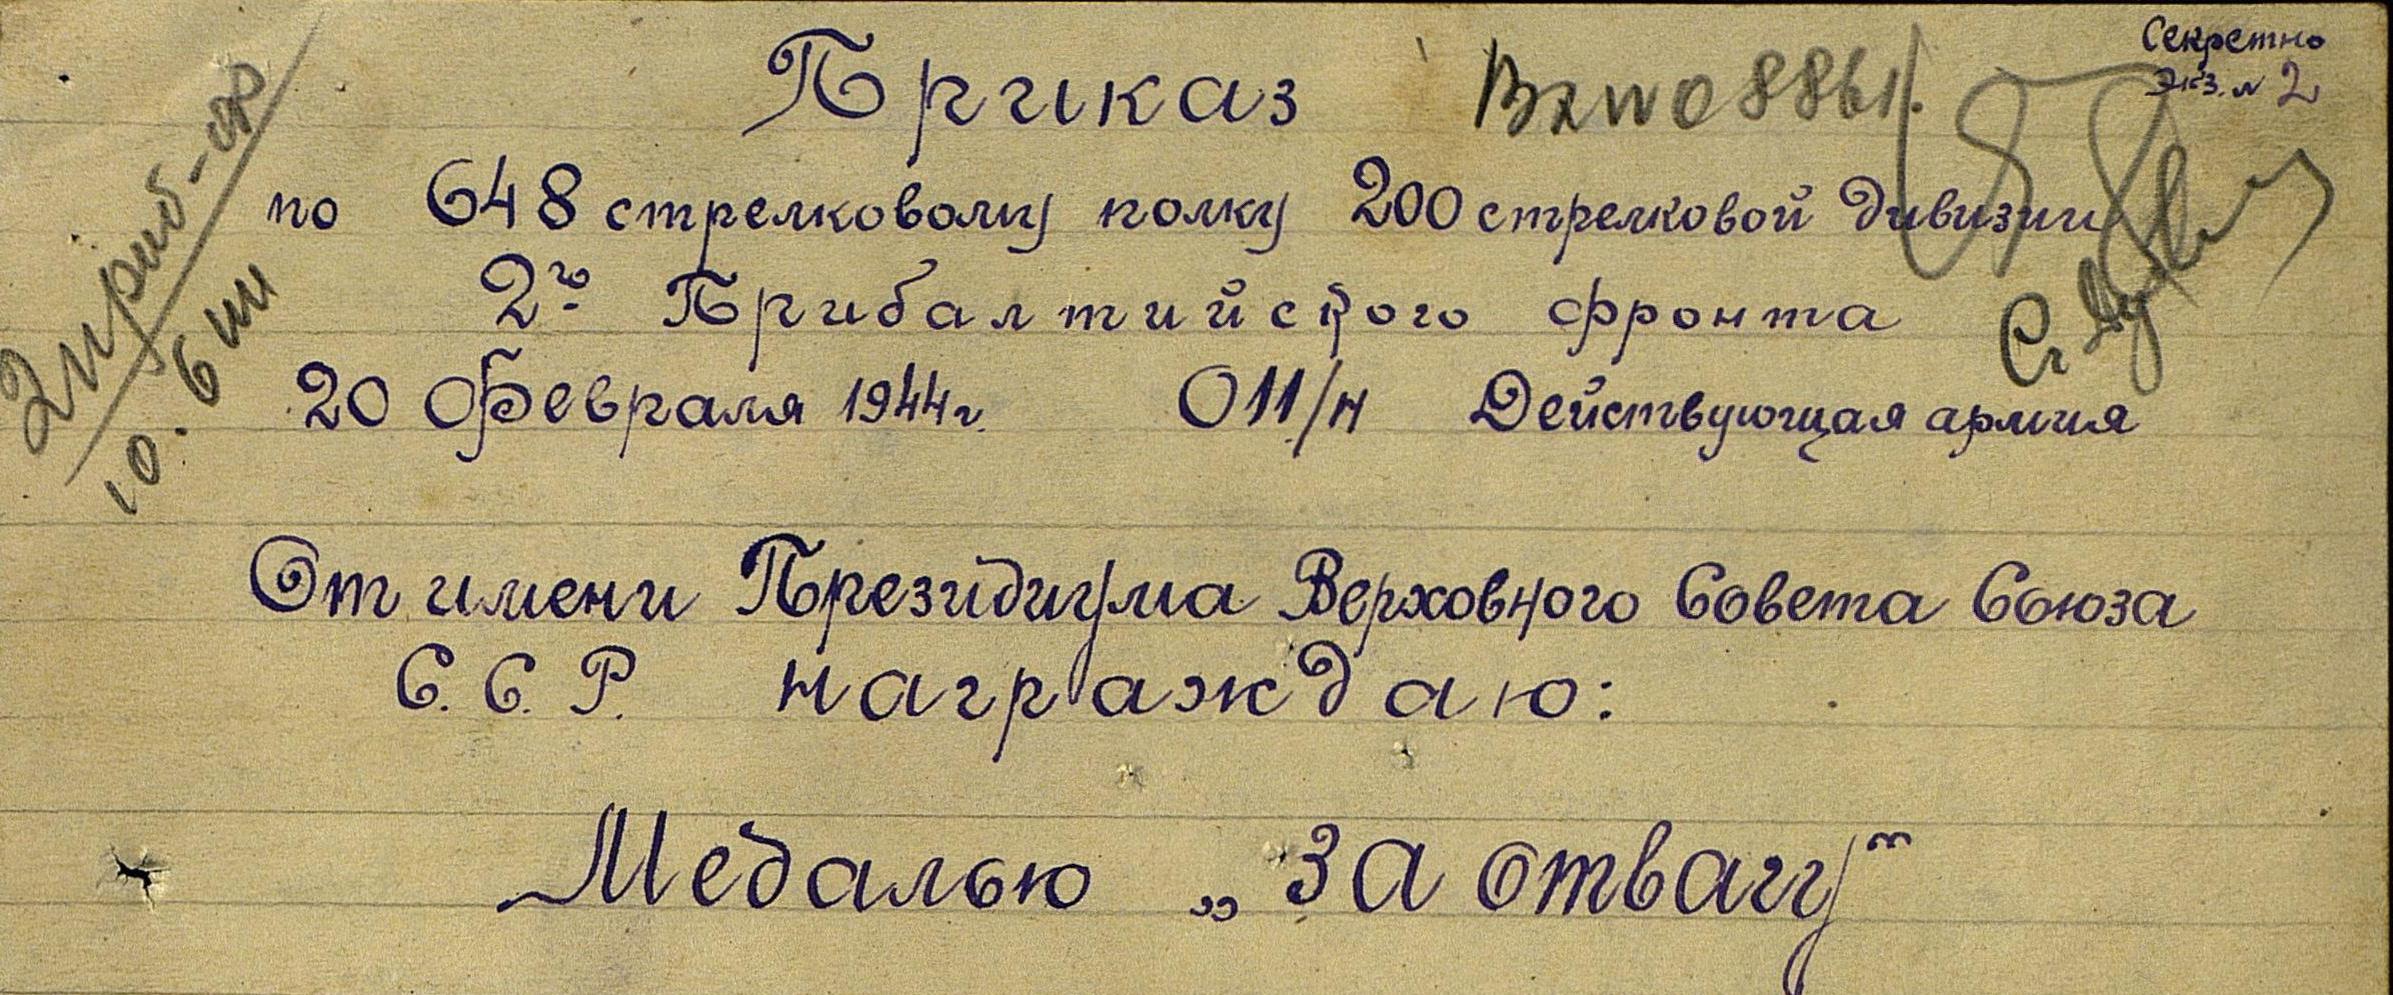 Секретно
Экз. № 2
Приказ
по 648 стрелковому полку 200 стрелковой дивизии
2го Прибалтийского фронта
20 Февраля 1944г. 011/н Действующая армия
От имени Президиума Верховного Совета Союза
С.С.Р. награждаю:
Медалью „За отвагу“
2 приб-фр
10. 6